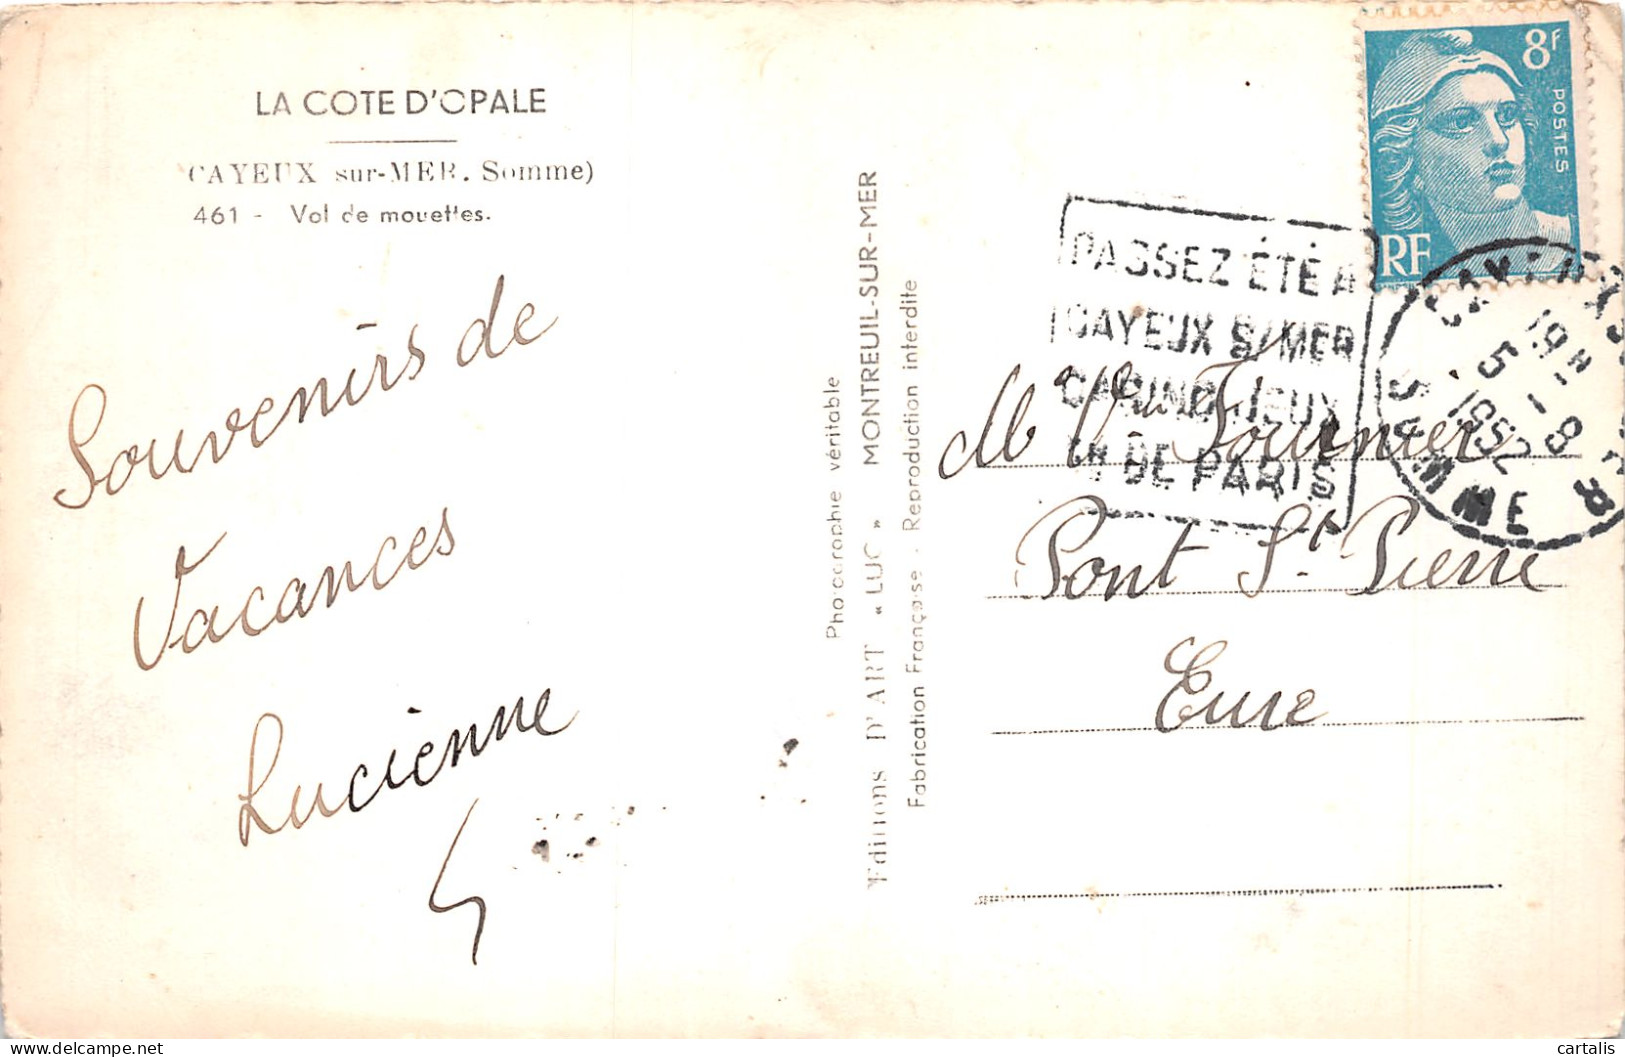 LA COTE D'OPALE
CAYEUX sur-MER. Somme)
461 - Vol de mouettes.
Souvenirs de
Vacances
Lucienne
Photographie véritable
Editions D'ART « LUC » MONTREUIL-SUR-MER
Fabrication Française - Reproduction interdite
8F
POSTES
RF
PASSEZ ÉTÉ A
CAYEUX S/MER
DE PARIS
CAYEUX SUR MER
19H
5 - 9
1952
SOMME
Fournier
Pont St. Pierre
Eure
cartalis